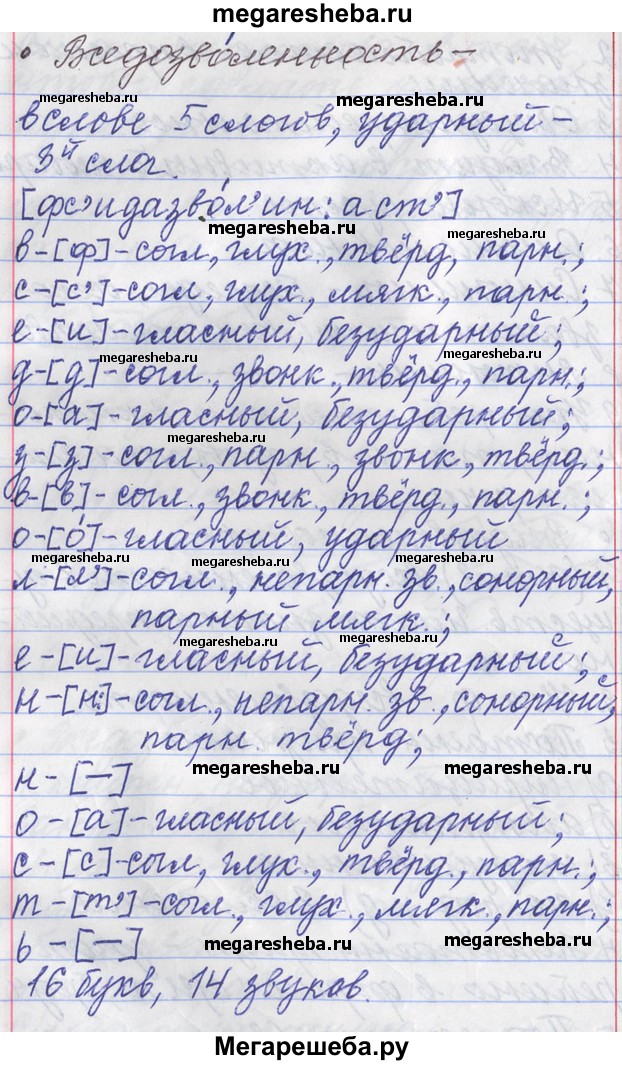 megaresheba.ru
• Вседозво́ленность –
megaresheba.ru megaresheba.ru
в слове 5 слогов, ударный –
3й слог.
megaresheba.ru
[фс’идазво́л’ин:аст’]
megaresheba.ru
в – [ф] – согл., глух., твёрд, парн.;
с – [с’] – согл., глух., мягк., парн.;
megaresheba.ru
е – [и] – гласный, безударный;
megaresheba.ru megaresheba.ru
д – [д] – согл., звонк., твёрд., парн.;
о – [а] – гласный, безударный;
megaresheba.ru
з – [з] – согл., парн., звонк., твёрд.;
megaresheba.ru
в – [в] – согл., звонк., твёрд., парн.;
о – [о́] – гласный, ударный
megaresheba.ru megaresheba.ru megaresheba.ru
л – [л’] – согл., непарн. зв., сонорный,
парный мягк.;
megaresheba.ru megaresheba.ru
е – [и] – гласный, безударный;
н – [н:] – согл., непарн. зв., сонорный,
парн. твёрд;
megaresheba.ru megaresheba.ru
н – [—]
о – [а] – гласный, безударный;
megaresheba.ru
с – [с] – сыл, глух., твёрд., парн.;
т – [т’] – согл., глух., мягк., парн.;
megaresheba.ru megaresheba.ru
ь – [—]
16 букв, 14 звуков.
Мегарешеба.ру